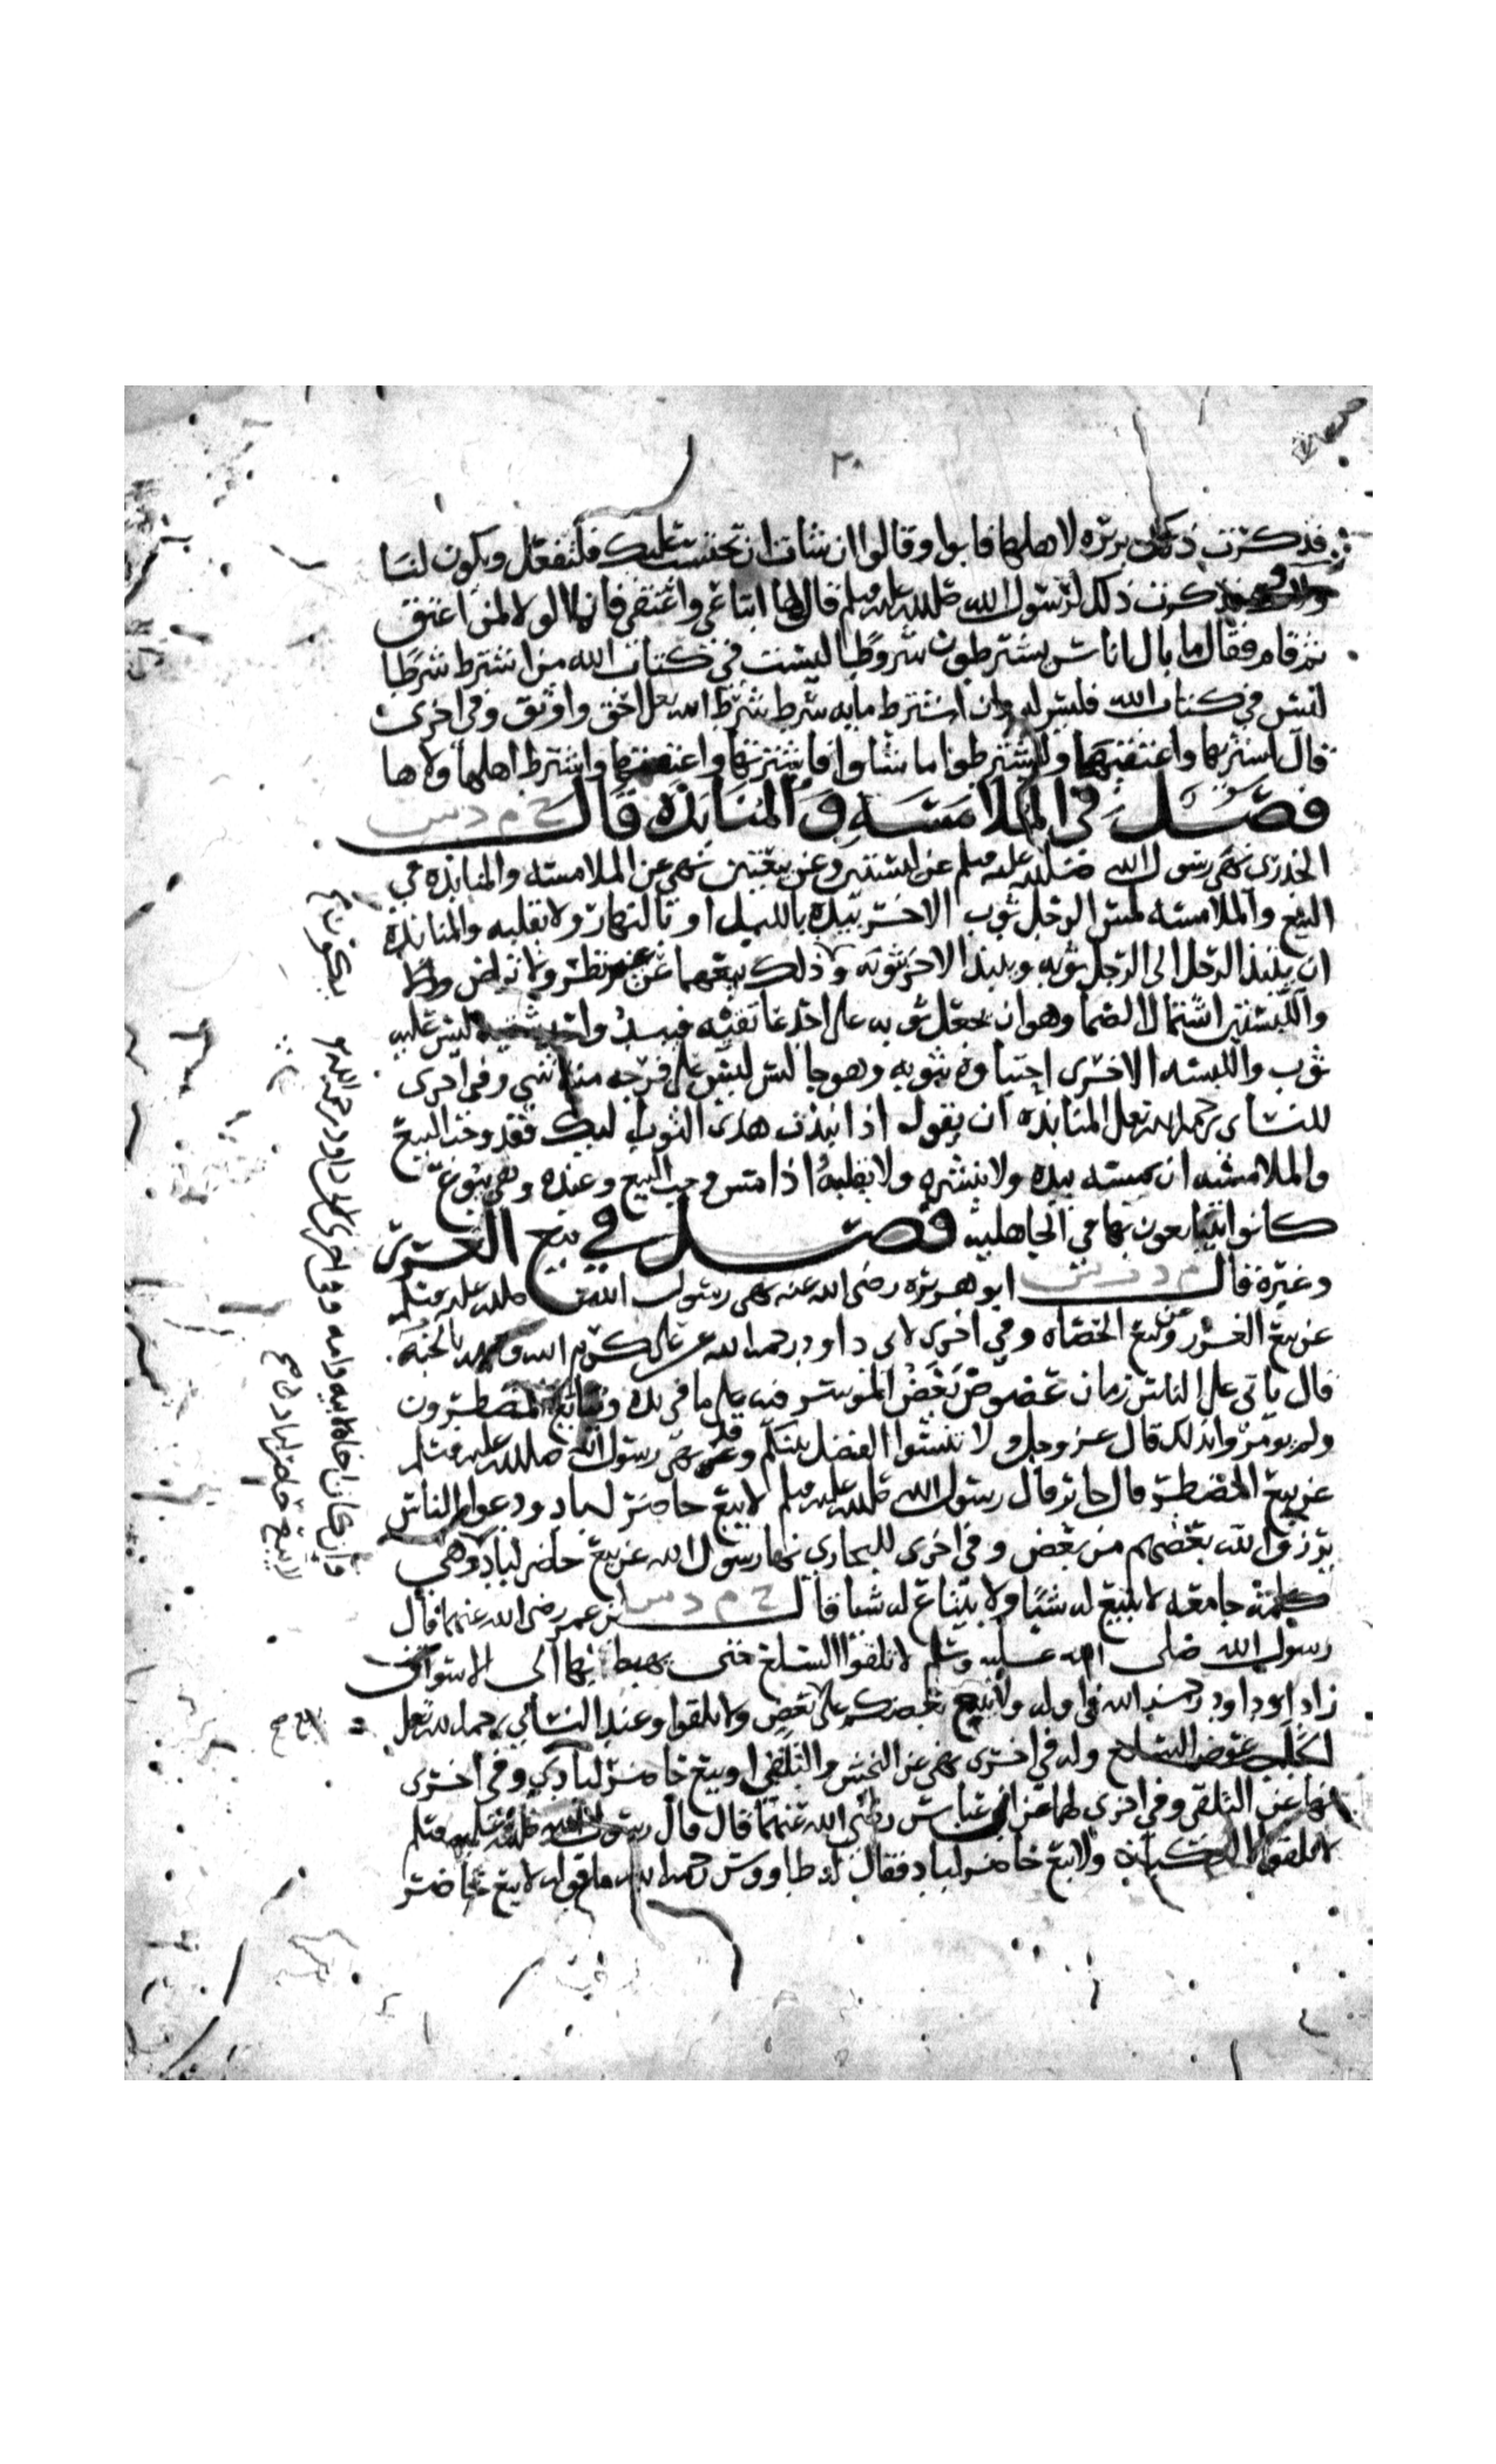 ٢٠
فذكرت ذلك بريره لاهلها فابوا وقالوا ان شات ان تحتسب عليك فلتفعل ويكون لنا
ولاوك فذكرت ذلك لرسول الله صلى الله عليه وسلم فقال لها ابتاعي واعتقي فانما الولا لمن اعتق
ثم قام فقال ما بال اناس يشترطون شروطا ليست في كتاب الله من اشترط شرطا
ليس في كتاب الله فليس له وان اشترط مايه شرط شرط الله تعالى احق واوثق وفي اخرى
قال اشتريها واعتقيها وليشترطوا ما شاوا فاشترتها واعتقتها واشترط اهلها ولاها
فصل في الملامسه والمنابذه قال خ م د س
الخدري نهى رسول الله صلى الله عليه وسلم عن لبستين وعن بيعتين نهى عن الملامسه والمنابذه في
البيع والملامسه لمس الرجل ثوب الاخر بيده بالليل او بالنهار ولا يقلبه والمنابذه
ان ينبذ الرجل الى الرجل ثوبه وينبذ الاخر ثوبه وذلك بيعهما عن غير نظر ولا تراض
واللبستين اشتمال الصما وهو ان يجعل ثوبه على احد عاتقيه فيبدو احد شقيه ليس عليه
ثوب واللبسه الاخرى احتباوه بثوبه وهو جالس ليس على فرجه منه شي وفي اخرى
للنساى رحمه الله تعالى المنابذه ان يقول اذا نبذت هذا الثوب اليك فقد وجب البيع
والملامسه ان يمسه بيده ولا ينشره ولا يقلبه اذا مس وجب البيع وعنده وهي بيوع
كانوا يتبايعون بها في الجاهليه فصل في بيع الغرر
وغيره قال م د ت س ابو هريره رضى الله عنه نهى رسول الله صلى الله عليه وسلم
عن بيع الغرر وعن بيع الحصاه وفي اخرى لابى داود رحمه الله عن على كرم الله وجهه بالجنه
قال ياتى على الناس زمان عضوض يعض الموسر فيه على ما في يده ويبايع المضطرون
ولم يومروا بذلك قال عز وجل ولا تنسوا الفضل بينكم وقد نهى رسول الله صلى الله عليه وسلم
عن بيع المضطر قال جابر قال رسول الله صلى الله عليه وسلم لا يبع حاضر لباد ودعوا الناس
يرزق الله بعضهم من بعض وفي اخرى للبخاري نهى رسول الله عن بيع حاضر لباد وهي
كلمه جامعه لا يبيع له شيا ولا يبتاع له شيا قال خ م د س ابن عمر رضى الله عنهما قال
رسول الله صلى الله عليه وسلم لا تلقوا السلع حتى يهبط بها الى الاسواق
زاد ابو داود رحمه الله في اوله ولا يبيع بعضكم على بعض ولا تلقوا وعند النسائي رحمه الله تعالى
الجلب عوض السلع وله في اخرى نهى عن النجش والتلقى او بيع حاضر لبادي وفي اخرى
نهى عن التلقى وفي اخرى لهما عن ابن عباس رضى الله عنهما قال قال رسول الله صلى الله عليه وسلم
لا تلقوا الركبان ولا يبع حاضر لباد فقال له طاووس رحمه الله ما قوله لا يبع حاضر
وان كان اخاه لابيه وامه وفى اخرى لابى داود
لا يبيع حاضر لباد